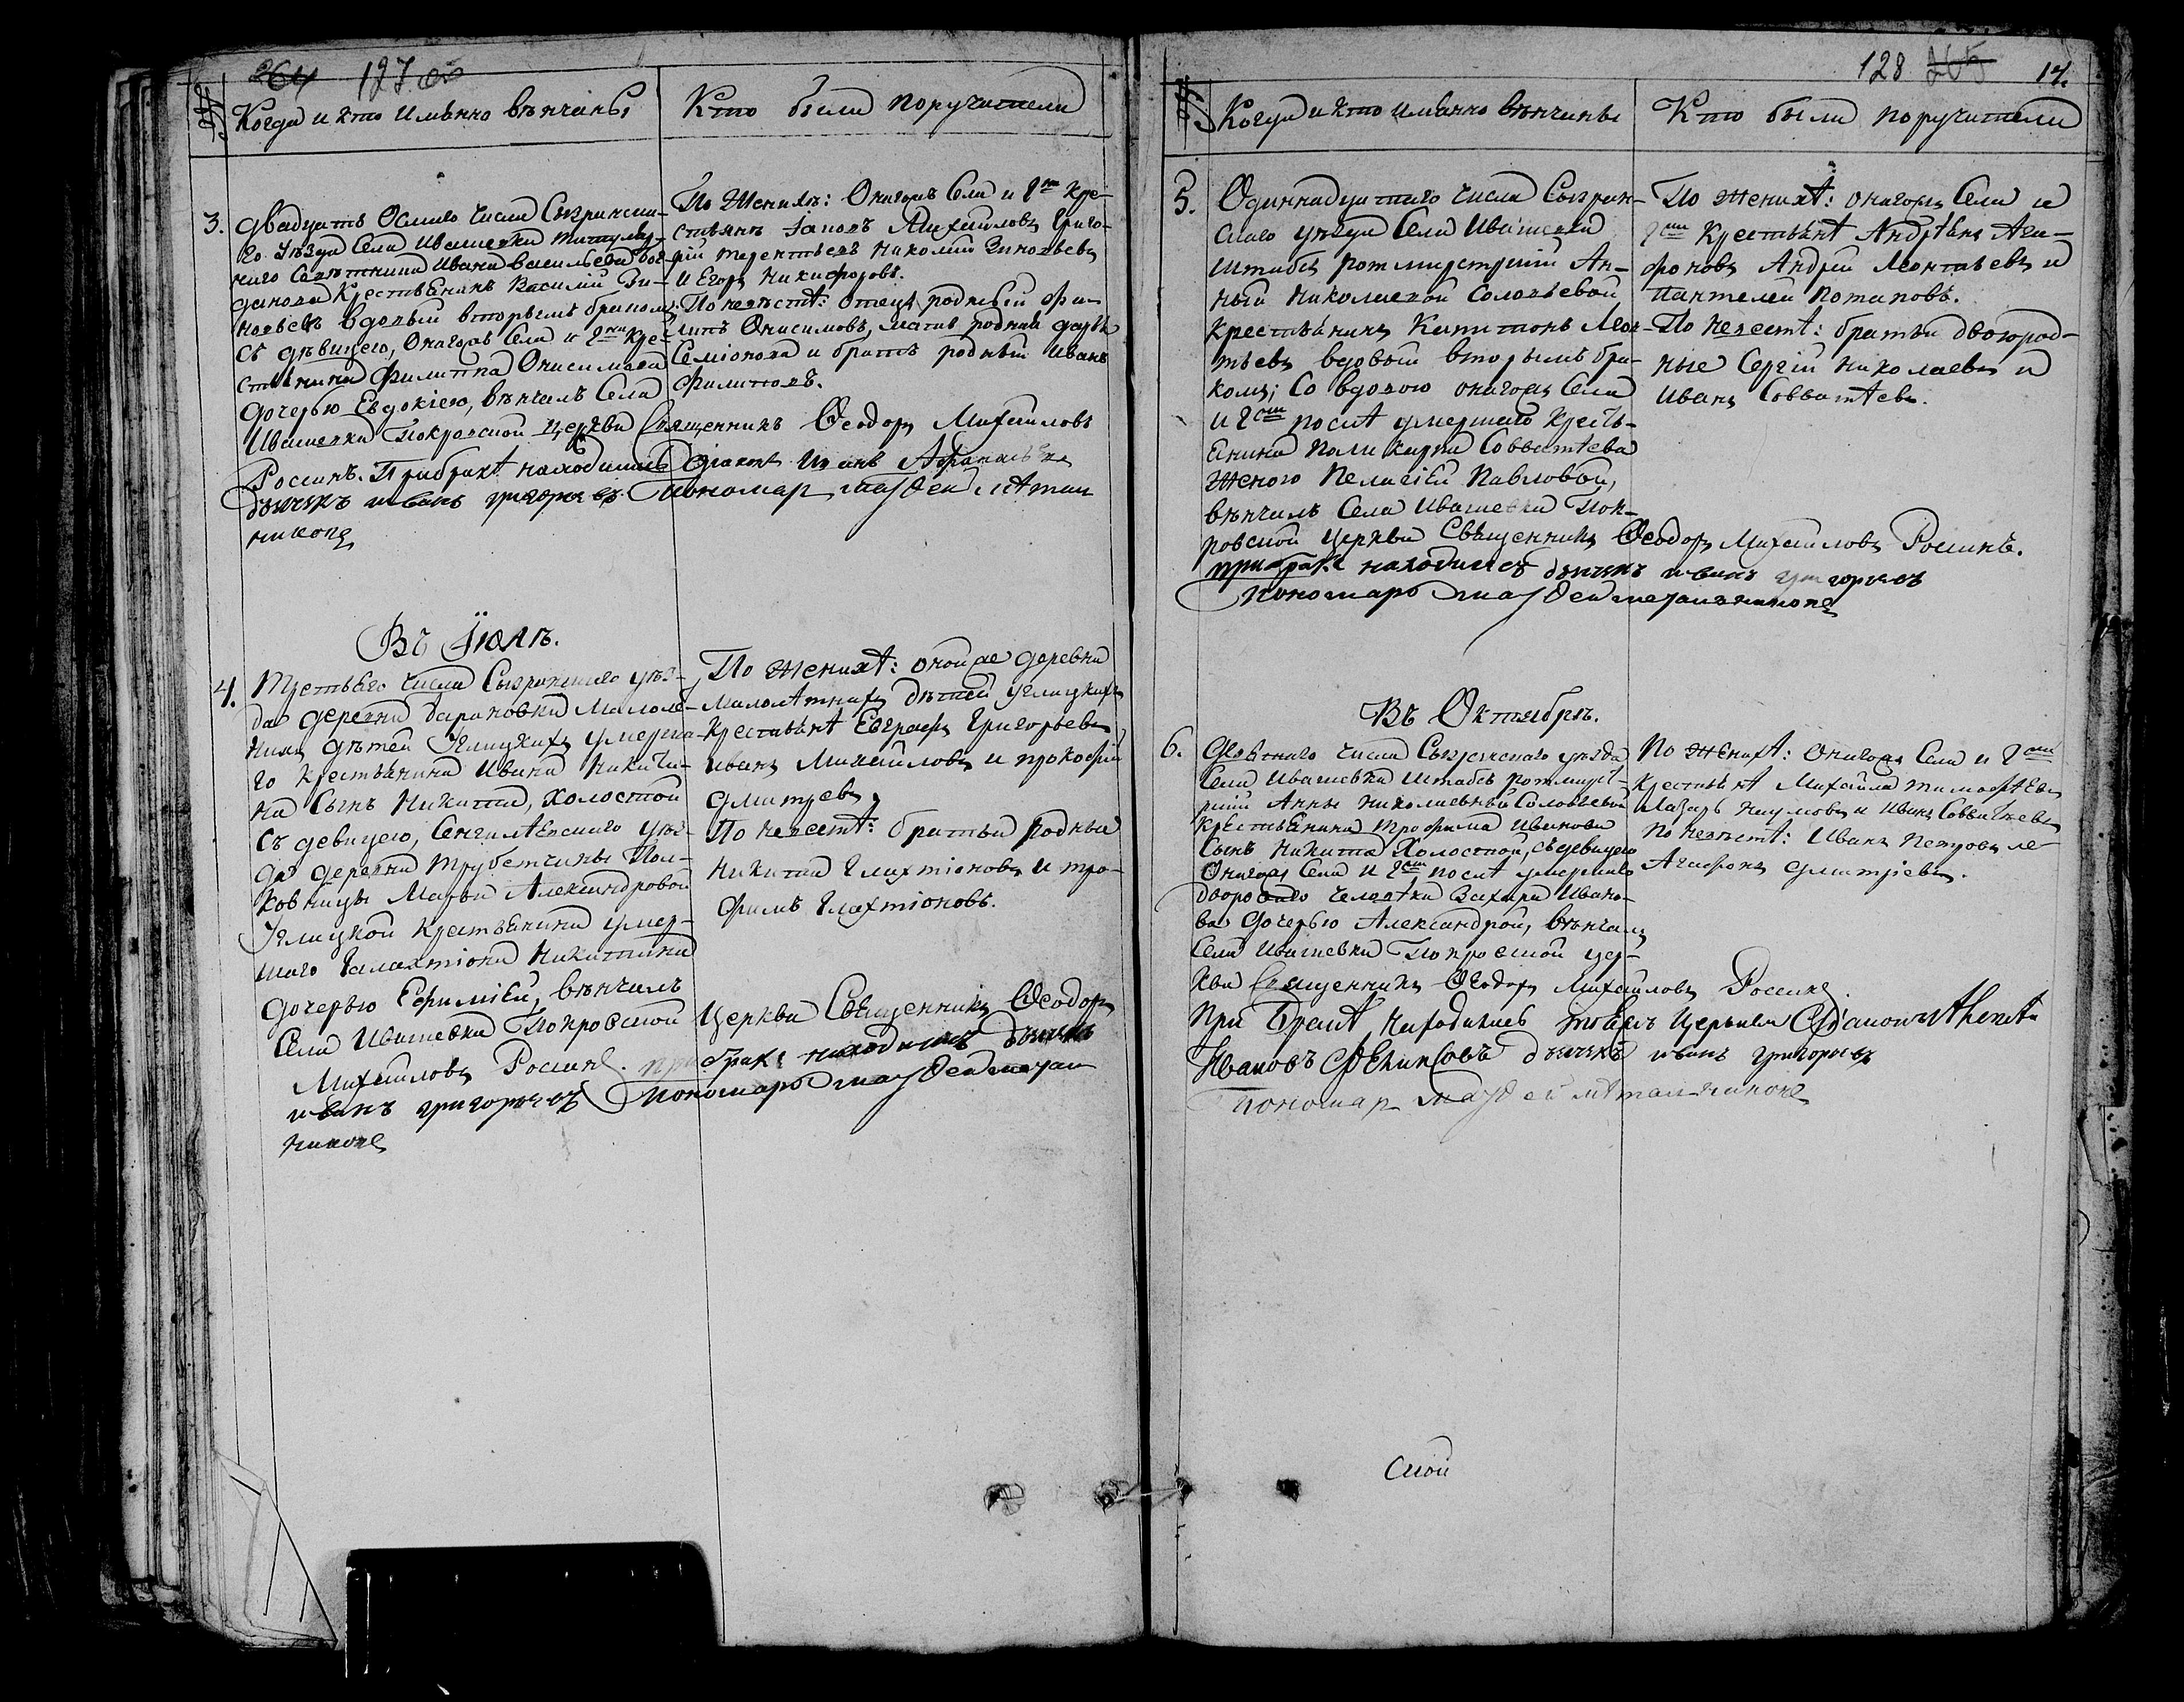 264 127 об
№
Когда и кто именно венчаны
Кто были поручители
3. Двадцать осмаго числа Сызранска-
го уезда села Ивашевки титуляр-
наго советника Ивана Васильева
крестьянинъ Василий Зи-
новьевъ вдовый вторымъ бракомъ;
съ девицею, онагожъ села и г-на кре-
стьянина Филиппа Онисимова
дочерью Евдокіею, венчалъ села
Ивашевки Покровской церкви Священникъ Феодоръ Михайловъ
Росинъ. При браке находились діаконъ Иванъ
дьячекъ иванъ григорьевъ пономарь
По женихе: Онагожъ села и г-на кре-
стьяне Іаковъ Михайловъ Григо-
рій терентьевъ Николай Зиновьевъ
и Егоръ Никифоровъ.
По невесте: отецъ родный Фи-
липъ Онисимовъ, мать родная дарья
Семіонова и братъ родный Иванъ
Филиповъ.
Въ Іюле.
4. Третьяго числа Сызранскаго уез-
да деревни барановки малолет-
нихъ детей Углицкихъ умерша-
го крестьянина Ивана Никити-
на сынъ Никита, холостой
съ девицею, Сенгилеевскаго уез-
да деревни Трубетчины Пол-
ковницы Марьи Александровой
Углицкой крестьянина умер-
шаго Галактіона Никитина
дочерью Ефиміей, венчалъ
Села Ивашевки Покровской церкви Священникъ Феодоръ
Михайловъ Росинъ. при браке находились дьячекъ
иванъ григорьевъ пономарь
По женихе: оной же деревни
малолетнихъ детей углицкихъ
крестьяне Евграфъ Григорьевъ
иванъ Михайловъ и прокофій
дмитревъ
По невесте: братья родные
Никита Галахтіоновъ и тро-
фимъ Галахтіоновъ.
128 265 17.
№
Когда и кто именно венчаны
Кто были поручители
5. Одиннадцатаго числа Сызран-
скаго уезда Села Ивашевки
Штабъ ротмистрши Ан-
ны Николаевой Соловьевой
крестьянинъ Капитонъ Леон-
тьевъ вдовый вторымъ бра-
комъ; со вдовою онагожъ села
и г-жи после умершаго кресть-
янина Поликарпа Савватеева
женою Пелагіей Павловой,
венчалъ Села Ивашевки Пок-
ровской церкви Священникъ Феодоръ Михайловъ Росинъ.
при браке находились дьячекъ иванъ григорьевъ
пономарь
По женихе: онагожъ Села и
г-жи крестьяне Андреянъ Ага-
фоновъ Андрей Леонтьевъ и
Пантелей Потаповъ.
По невесте: братья двоюрод-
ные Сергій Николаевъ и
Иванъ Савватеевъ.
Въ Октябре.
6. Девятаго числа Сызранскаго уезда
Села Ивашевки Штабсъ ротмист-
рши Анны Николаевны Соловьевой
крестьянина Трофима Иванова
Сынъ Никита Холостой, съ девицею
Онагожъ Села и г-жи после умершаго
двороваго человека Захара Ивано-
ва дочерью Александрой, венчалъ
Села Ивашевки Покровской цер-
кви Священникъ Феодоръ Михайловъ Росинъ.
При браке находились
Ивановъ дьячекъ иванъ григорьевъ
пономарь
По женихе: Онагожъ Села и г-жи
крестьяне Михайла тимофеевъ
Лазарь Наумовъ и Иванъ Савватеевъ
По невесте: Иванъ Петровъ
Агафонъ дмитріевъ.
ской